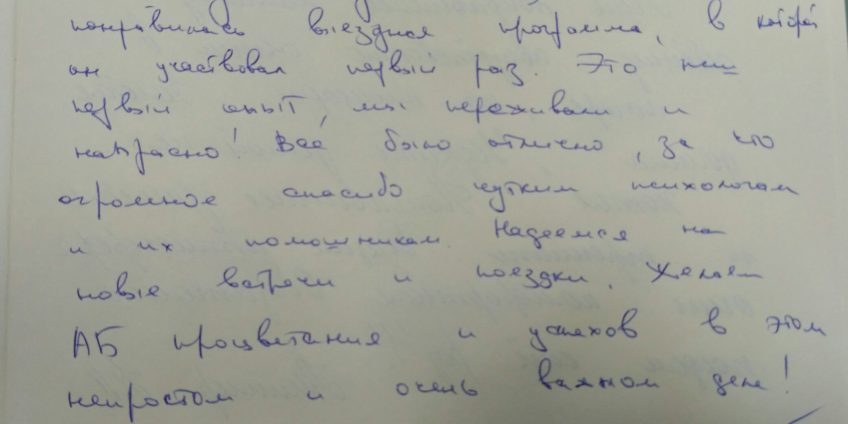 понравилась выездная программа, в которой
он участвовал первый раз. Это наш
первый опыт, мы переживали и
напрасно! Всё было отлично, за что
огромное спасибо чутким психологам
и их помошникам. Надеемся на
новые встречи и поездки. Желаем
АБ процветания и успехов в этом
непростом и очень важном деле!